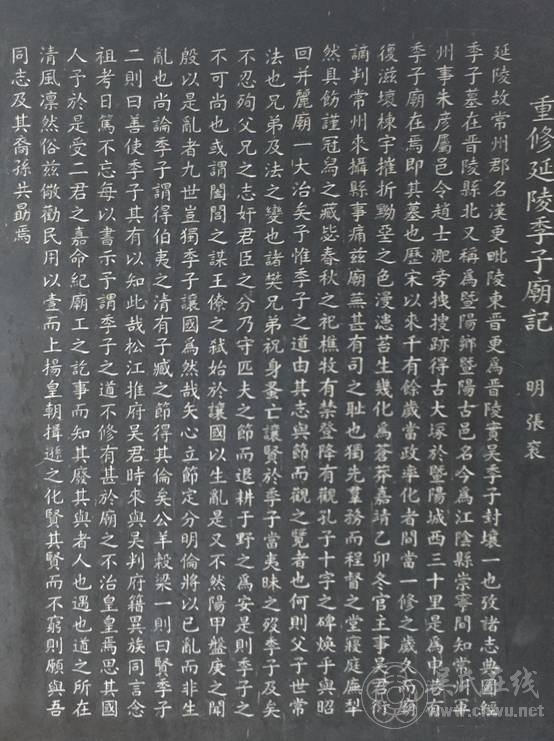 重修延陵季子廟記
明 張袞
延陵故常州郡名漢更毗陵東晋更爲晋陵實吴季子封壤一也攷諸志典圖經
季子墓在晋陵縣北又稱爲暨陽鄉暨陽古邑名今爲江陰縣崇寧間知常
州事朱彦屬邑令趙士㴲旁拽搜跡得古大塚於暨陽城西三十里是爲申
季子廟在焉即其墓也歷宋以來千有餘歲當政率化者間當一修之歲久而
復滋壞棟宇摧折黝堊之色漫漶苔生幾化爲蒼莽嘉靖乙卯冬官主事吴君
謫判常州來攝縣事痛兹廟無甚有司之耻也獨先羣務而程督之堂寢庭廡犁
然具飭謹冠舃之藏毖春秋之祀樵牧有禁登降有觀孔子十字之碑煥乎與昭
回并麗廟一大治矣子惟季子之道由其志與節而觀之覽者也何則父子世常
法也兄弟及法之變也諸樊兄弟祝身蚤亡讓賢於季子當夷昧之殁季子及矣
不忍殉父兄之志奸君臣之分乃守匹夫之節而退耕于野之爲安是則季子之
不可尚也或謂闔閭之謀王僚之弑始於讓國以生亂是又不然陽甲盤庚之閒
殷以是亂者九世豈獨季子讓國爲然哉矢心立節定分明倫將以已亂而非生
亂也尚論季子謂得伯夷之清有子臧之節得其倫矣公羊穀梁一則曰賢季子
二則曰善使季子其有以知此哉松江推府吴君時來與吴判府籍異族同言念
祖考日篤不忘每以書示予謂季子之道不修有甚於廟之不治皇皇焉思其國
人子於是受二君之嘉命紀廟工之訖事而知其廢其興者人也遇也道之所在
清風凛然俗兹儆勸民用以臺而上揚皇朝揖遜之化賢其賢而不窮則願與吾
同志及其裔孫共勗焉
吴氏在线
www.cnwu.net